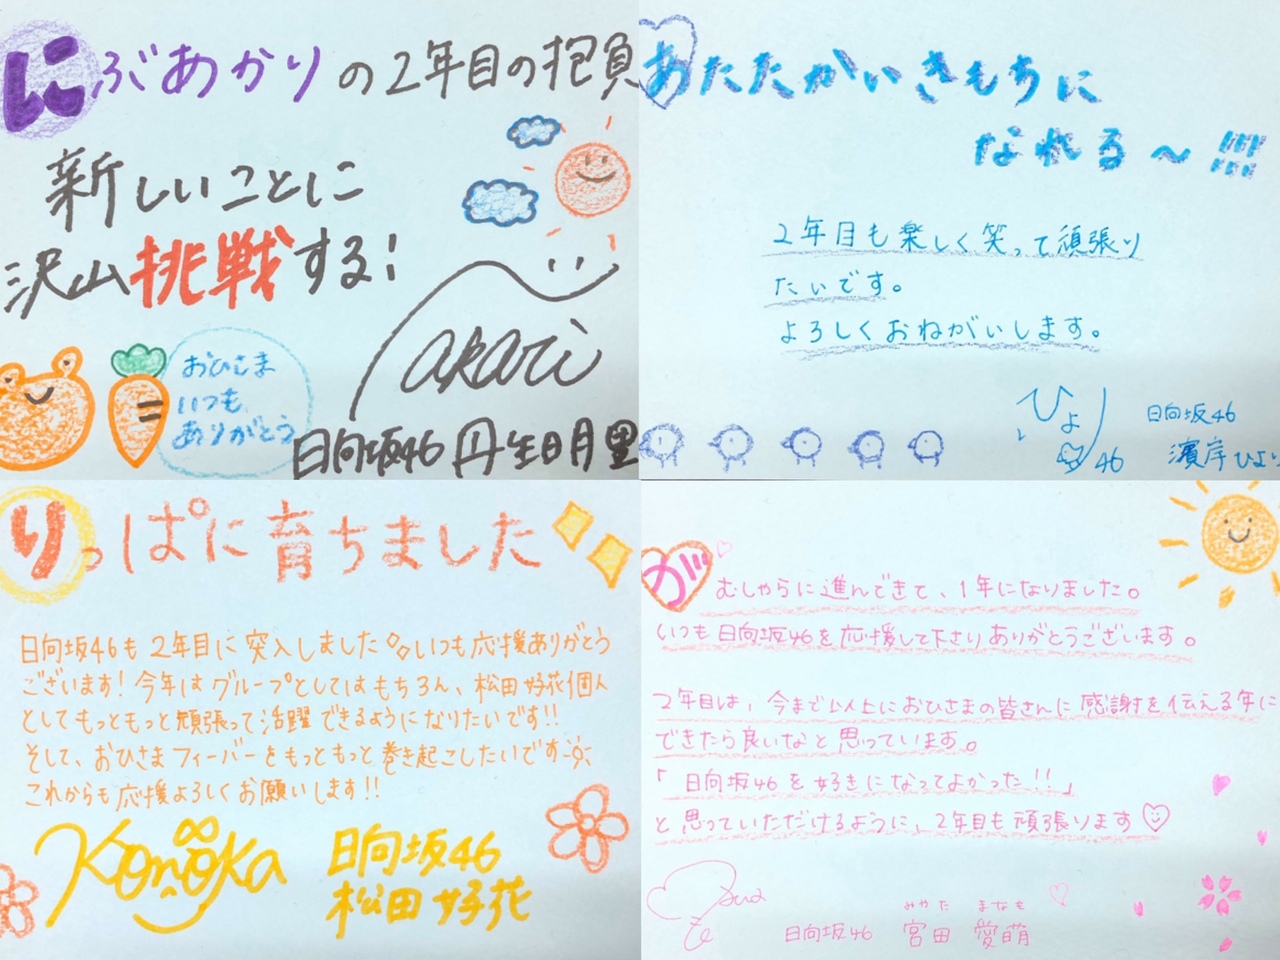 にぶあかりの2年目の抱負
新しいことに
沢山挑戦する!
おひさま
いつも
ありがとう
akari
日向坂46 丹生明里
あたたかいきもちに
なれる〜!!!
2年目も楽しく笑って頑張り
たいです。
よろしくおねがいします。
ひよ
46
日向坂46
濱岸ひより
りっぱに育ちました
日向坂46も2年目に突入しました いつも応援ありがとう
ございます!今年はグループとしてはもちろん、松田好花個人
としてもっともっと頑張って活躍できるようになりたいです!!
そして、おひさまフィーバーをもっともっと巻き起こしたいです
これからも応援よろしくお願いします!!
Konoka
日向坂46
松田好花
がむしゃらに進んできて、1年になりました。
いつも日向坂46を応援して下さりありがとうございます。
2年目は、今まで以上におひさまの皆さんに感謝を伝える年に
できたら良いなと思っています。
「日向坂46を好きになってよかった!!」
と思っていただけるように、2年目も頑張ります♡
みやた まなも
日向坂46 宮田愛萌